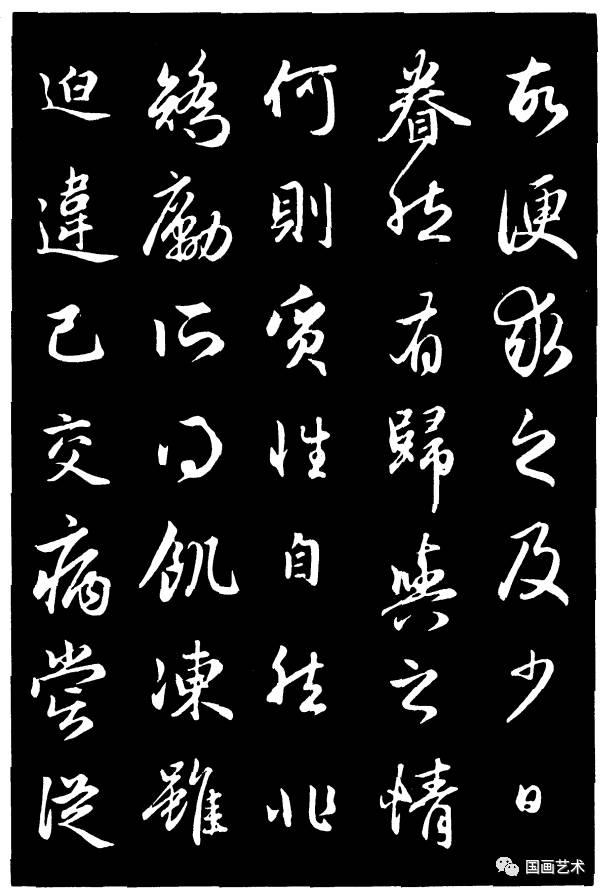 故便求之及少日
眷然有歸與之情
何則質性自然非
矯勵所得飢凍雖
迫違己交病嘗從
国画艺术